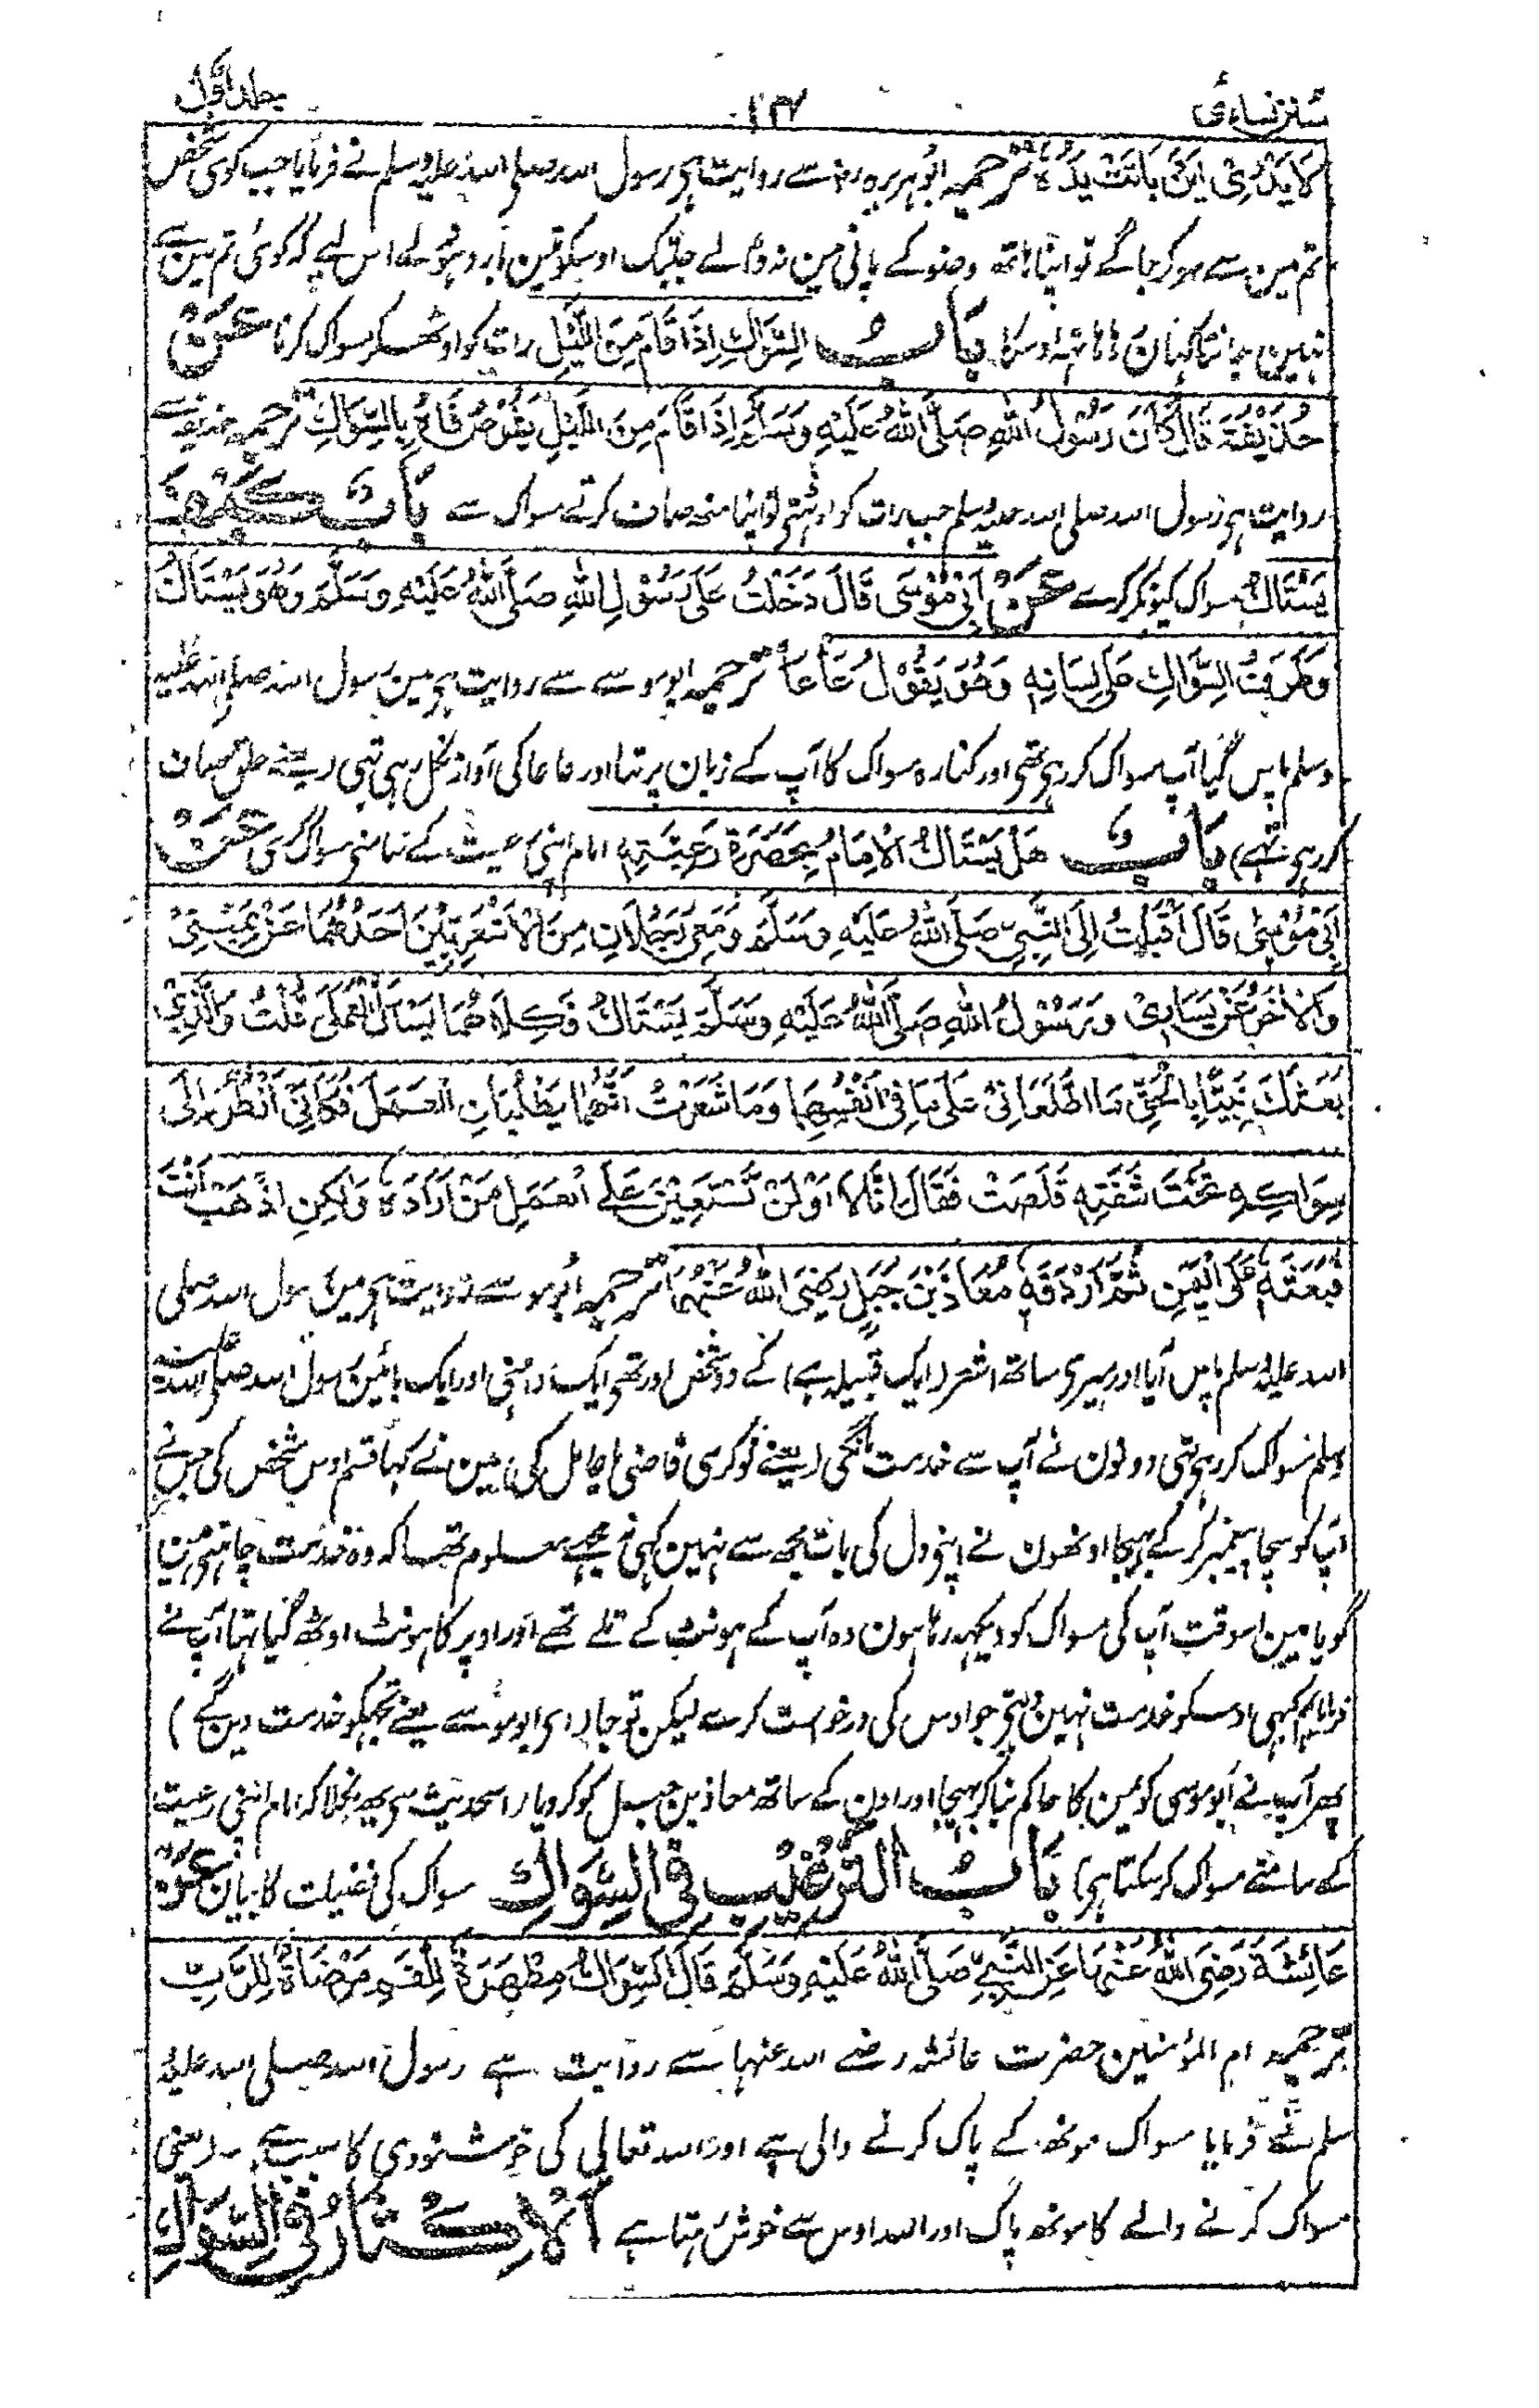 سنن نسائی ۱۴ جلد اول
لَا يَدْرِىْ اَيْنَ بَاتَتْ يَدُهٗ ترجمہ ابوہریرہ رضہ سے روایت ہی رسول اللہ صلی اللہ علیہ وسلم نے فرمایا جب کوئی شخص
تم مین سے سو کر جاگے تو اپنا ہاتھ وضو کے پانی مین نہ ڈالے جبتک اوسکو تین بار دہو لے اس لیے کہ کوئی تم مین سے
نہین جانتا کہان رہا ہاتھہ اوسکا بَابُ السِّوَاكِ اِذَا قَامَ مِنَ اللَّيْلِ رات کو اوٹھکر مسواک کرنا عَنْ
حُذَيْفَةَ قَالَ كَانَ رَسُوْلُ اللّٰهِ صَلَّى اللّٰهُ عَلَيْهِ وَسَلَّمَ اِذَا قَامَ مِنَ اللَّيْلِ يَشُوْصُ فَاهُ بِالسِّوَاكِ ترجمہ حذیفہ سے
روایت ہی رسول اللہ صلی اللہ علیہ وسلم جب رات کو اوٹہتی تو اپنا منھ صاف کرتے مسواک سے بَابُ كَيْفَ
يَسْتَاكُ مسواک کیونکر کرے عَنْ اَبِىْ مُوْسٰى قَالَ دَخَلْتُ عَلٰى رَسُوْلِ اللّٰهِ صَلَّى اللّٰهُ عَلَيْهِ وَسَلَّمَ وَهُوَ يَسْتَاكُ
وَطَرَفُ السِّوَاكِ عَلٰى لِسَانِهٖ وَهُوَ يَقُوْلُ عَأْ عَأْ ترجمہ ابو موسے سے روایت ہی مین رسول اللہ صلی اللہ علیہ
وسلم پاس گیا آپ مسواک کر رہی تھی اور کنارہ مسواک کا آپ کے زبان پر تہا اور عا عا کی آواز نکل رہی تہی (یعنے حلق صاف
کر رہی تہے) بَابُ هَلْ يَسْتَاكُ الْاِمَامُ بِحَضْرَةِ رَعِيَّتِهٖ امام اپنی رعیت کے سامنی مسواک کری عَنْ
اَبِىْ مُوْسٰى قَالَ اَقْبَلْتُ اِلَى النَّبِىِّ صَلَّى اللّٰهُ عَلَيْهِ وَسَلَّمَ وَمَعِىَ رَجُلَانِ مِنَ الْاَشْعَرِيِّيْنَ اَحَدُهُمَا عَنْ يَمِيْنِىْ
وَالْاٰخَرُ عَنْ يَسَارِىْ وَرَسُوْلُ اللّٰهِ صَلَّى اللّٰهُ عَلَيْهِ وَسَلَّمَ يَسْتَاكُ فَكِلَاهُمَا يَسْاَلُ الْعَمَلَ قُلْتُ وَالَّذِىْ
بَعَثَكَ نَبِيًّا بِالْحَقِّ مَا اطَّلَعَانِىْ عَلٰى مَا فِىْ اَنْفُسِهِمَا وَمَا شَعَرْتُ اَنَّهُمَا يَطْلُبَانِ الْعَمَلَ فَكَاَنِّىْ اَنْظُرُ اِلٰى
سِوَاكِهٖ تَحْتَ شَفَتِهٖ قَلَصَتْ فَقَالَ اِنَّا لَا اَوْ لَنْ نَسْتَعِيْنَ عَلَى الْعَمَلِ مَنْ اَرَادَهٗ وَلٰكِنِ اذْهَبْ اَنْتَ
فَبَعَثَهٗ عَلَى الْيَمَنِ ثُمَّ اَرْدَفَهٗ مُعَاذَ بْنَ جَبَلٍ رَضِىَ اللّٰهُ عَنْهُمَا ترجمہ ابو موسے سے روایت ہی مین رسول اللہ صلی
اللہ علیہ وسلم پاس آیا اور میری ساتھ اشعر (ایک قبیلہ ہے) کے دو شخص اور تھی ایک داہنی اور ایک بائین رسول اللہ صلی اللہ علیہ
وسلم مسواک کر رہی تہی دونون نے آپ سے خدمت مانگی (یعنے نوکری قاضی یا عامل کی) مین نے کہا قسم اوس شخص کی جس نے
آپ کو سچا پیغمبر کر کے بہیجا اونھون نے اپنی دل کی بات مجھ سے نہین کہی نہ مجہے معلوم تہا کہ وہ خدمت چاہتی ہین
گویا مین اسوقت آپ کی مسواک کو دیکہہ رہا ہون وہ آپ کے ہونٹ کے تلے تھے اور اوپر کا ہونٹ اوٹھ گیا تہا آپ نے
فرمایا ہم کبہی اوسکو خدمت نہین دیتی جو اوس کی درخواست کرے لیکن تو جا (ای ابو موسے یعنے تجہکو خدمت دین گے)
پھر آپ نے ابو موسی کو یمن کا حاکم بنا کر بہیجا اور اون کے ساتھ معاذ بن جبل کو کر دیا (اس حدیث سی یہ نکلا کہ امام اپنی رعیت
کے سامنے مسواک کر سکتا ہی) بَابُ التَّرْغِيْبِ فِى السِّوَاكِ مسواک کی فضیلت کا بیان عَنْ
عَائِشَةَ رَضِىَ اللّٰهُ عَنْهَا عَنِ النَّبِىِّ صَلَّى اللّٰهُ عَلَيْهِ وَسَلَّمَ قَالَ السِّوَاكُ مِطْهَرَةٌ لِّلْفَمِ مَرْضَاةٌ لِلرَّبِّ
ترجمہ ام المؤمنین حضرت عائشہ رضے اللہ عنہا سے روایت ہے رسول اللہ صلی اللہ علیہ
سلم نے فرمایا مسواک مونھہ کے پاک کرنے والی ہے اور اللہ تعالی کی خوشنودی کا سبب ہے (یعنی
مسواک کرنے والے کا مونھ پاک اور اللہ اوس سے خوش رہتا ہے اَلْاِكْثَارُ فِى السِّوَاكِ